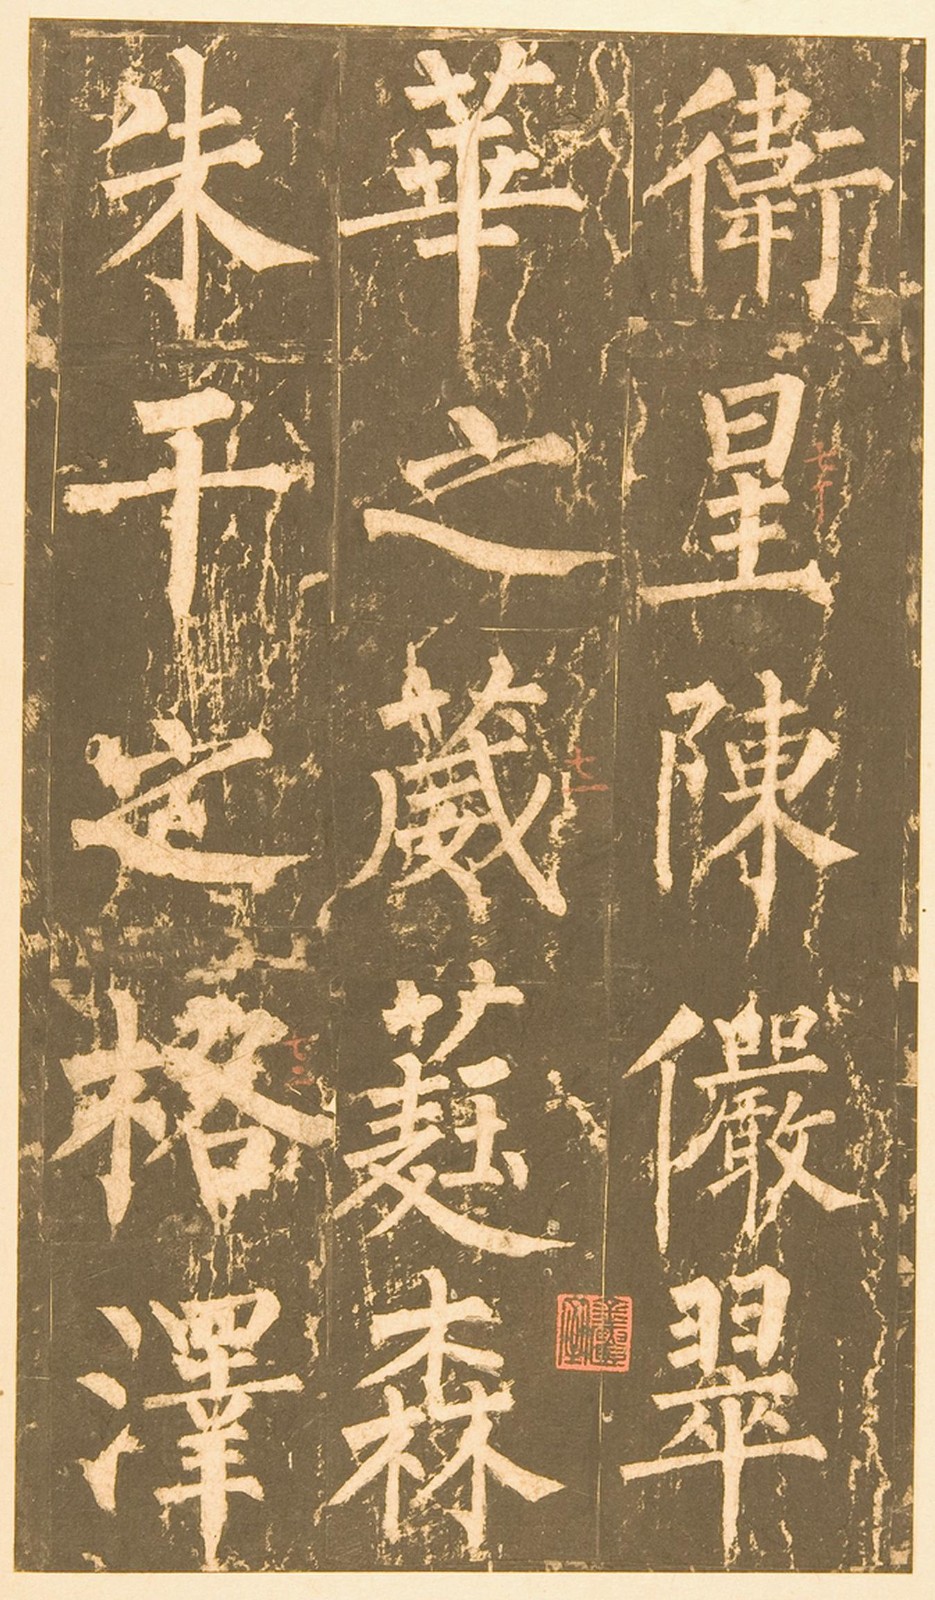 衛星陳儼翠
華之葳蕤森
朱干之格澤
七十
七一
七二